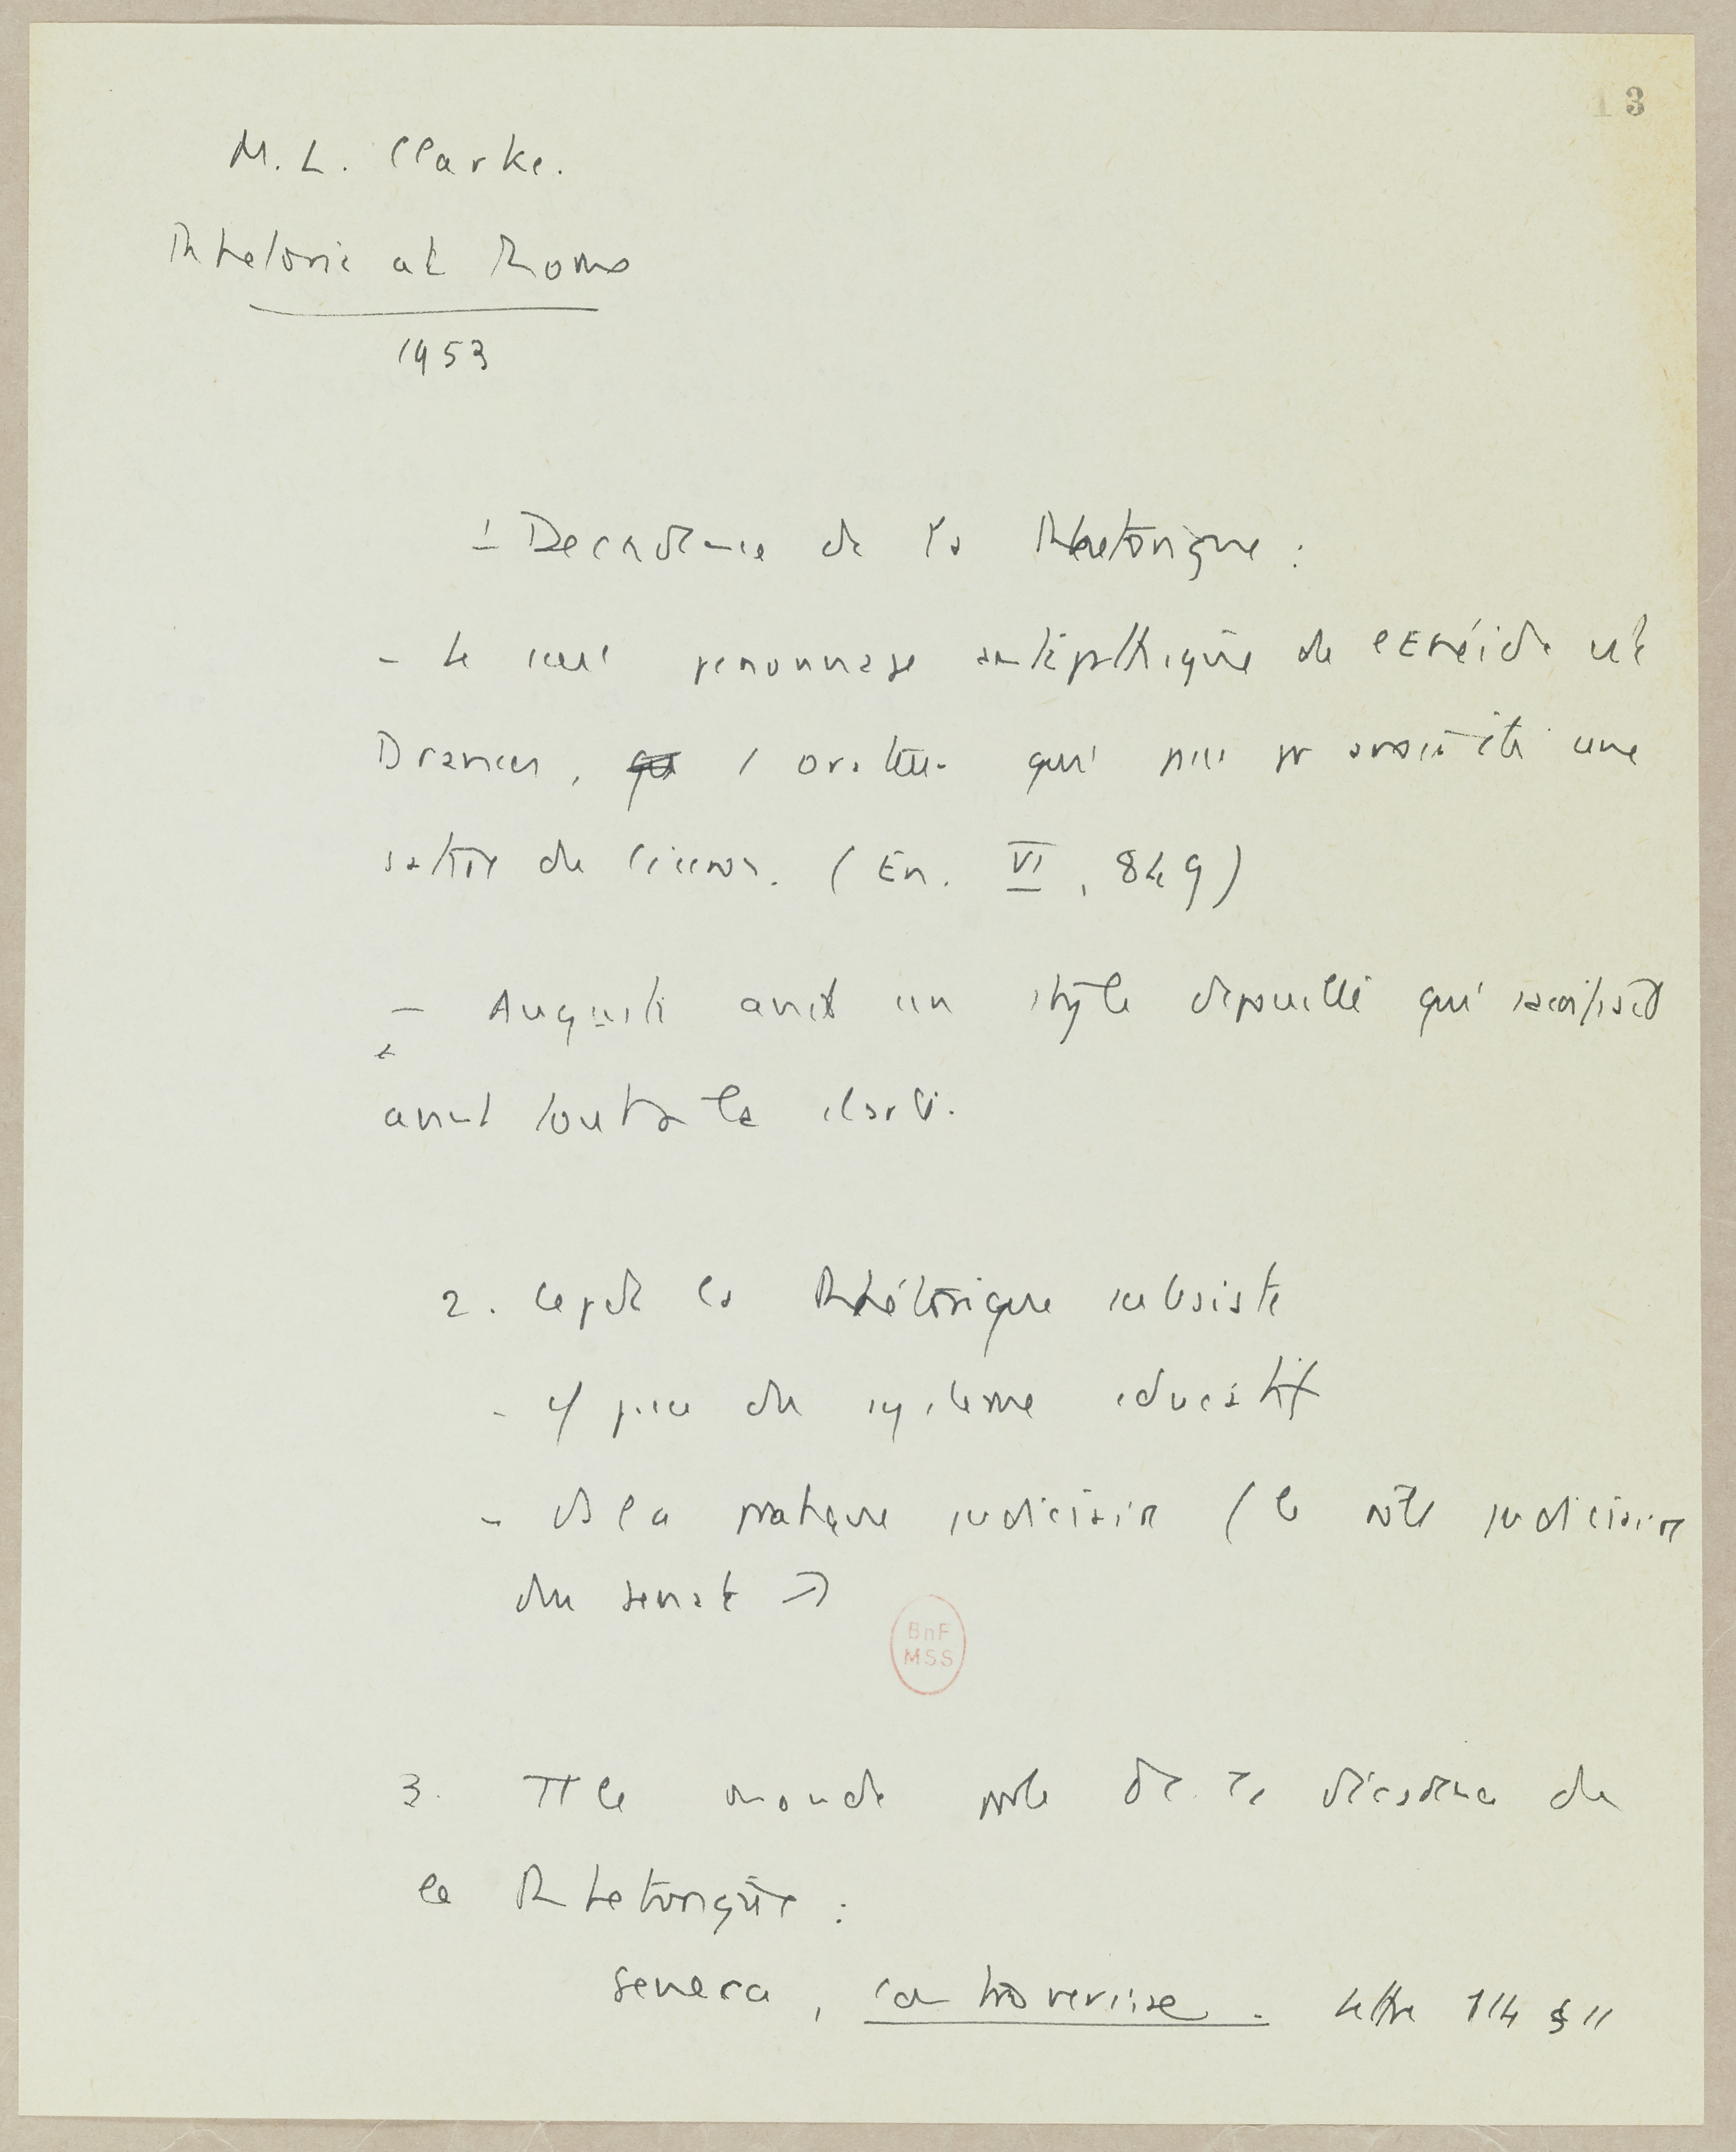 13
M. L. Clarke.
Rhetoric at Rome
1953
1 Decadence de la Rhetorique :
- Le seul personnage antipathique de l'Enéide est
Drances, l'orateur qui une
satire de Ciceron. (En. VI, 849)
- Auguste avait un style depouillé qui
avant tout la clarté.
2. Cepdt la Rhétorique subsiste
- piece du systeme educatif
- ds la pratique judiciaire (le rôle judiciaire
du senat ↗
3. Tt le monde parle de la décadence de
la Rhetorique :
Seneca, Controversiae. Lettre 114 § 11
BnF
MSS